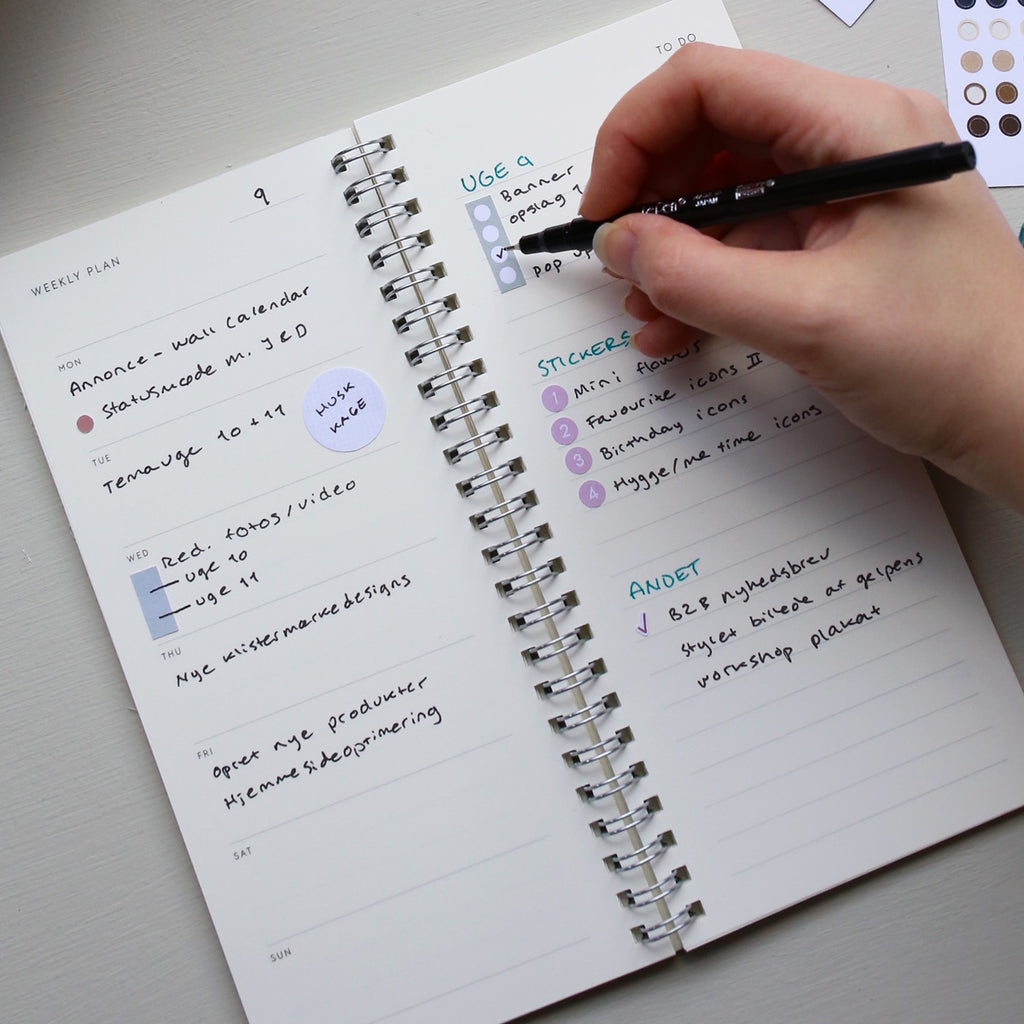 WEEKLY PLAN
9
MON
Annonce - wall calendar
Statusmøde m. J & D
TUE
Temauge 10 + 11
HUSK
KAGE
WED
Red. fotos / video
uge 10
uge 11
THU
Nye klistermærkedesigns
FRI
Opret nye produkter
Hjemmesideoptimering
SAT
SUN
TO DO
UGE 9
Banner
opslag 1
POP UP
STICKERS
1 Mini flower
2 Favourite icons II
3 Birthday icons
4 Hygge/me time icons
ANDET
B2B nyhedsbrev
stylet billede af gelpens
workshop plakat